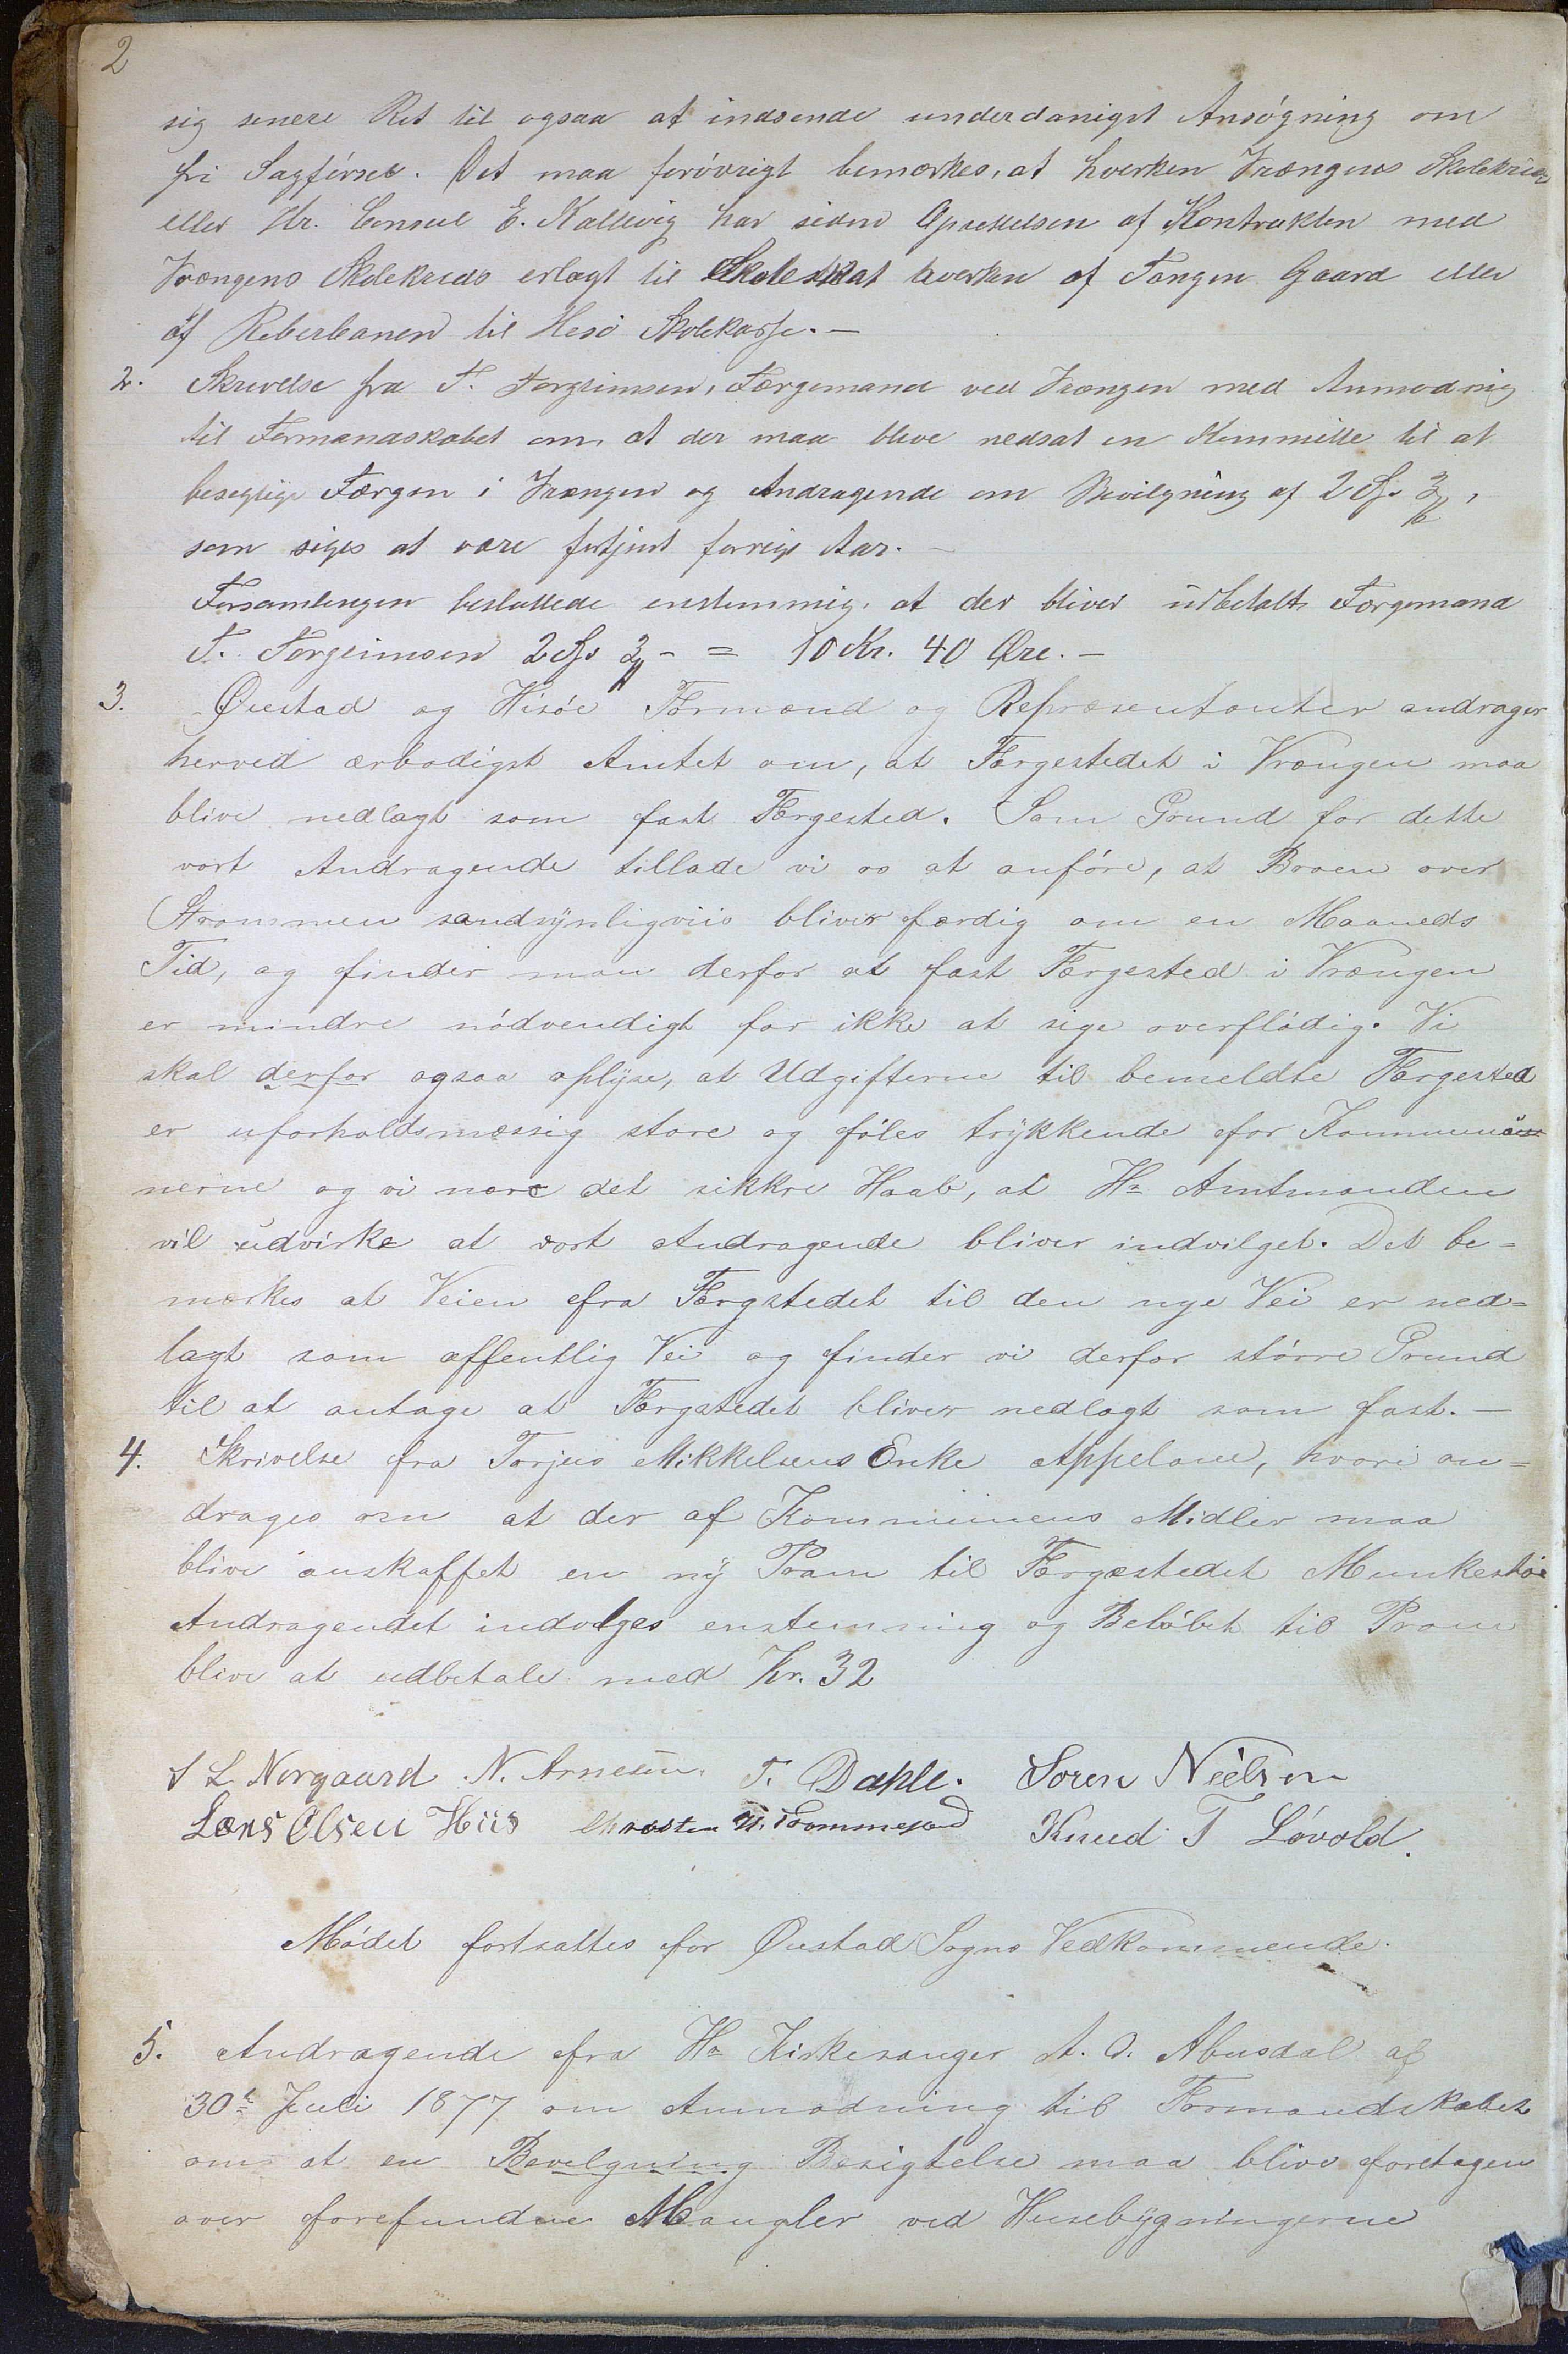 2
sig senere Ret til ogsaa at indsende underdanigst Ansøgning om
fri Sagførsel. Det maa forøvrigt bemærkes, at hverken Vrængens Skolekreds
eller Hr. Consul E. Kallevig har siden Oprettelsen af Kontrakten med
Vrængens Skolekreds erlagt til Skoleskat hverken af Tangen Gaard eller
af Reberbanen til Hesø Skolekasse. —
2. Skrivelse fra T. Torgrimsen, Færgemand ved Vrængen med Anmodning
til Formandskabet om at der maa blive nedsat en Kommitte til at
besigtige Færgen i Vrængen og Andragende om Bevilgning af 2 Spd 3 ,
som siges at være fortjent forrige Aar. —
Forsamlingen besluttede enstemmig, at der bliver udbetalt Færgemand
T. Torgrimsen 2 Spd 3 - = 10 Kr. 40 Øre. —
3. Øiestad og Hisøe Formænd og Repræsentanter andrager
herved ærbødigst Amtet om, at Færgestedet i Vrængen maa
blive nedlagt som fast Færgested. Som Grund for dette
vort Andragende tillade vi os at anføre, at Broen over
Strømmen sandsynligviis bliver færdig om en Maaneds
Tid, og finder man derfor at fast Færgested i Vrængen
er mindre nødvendigt for ikke at sige overflødig. Vi
skal derfor ogsaa oplyse, at Udgifterne til bemeldte Færgested
er uforholdsmæssig store og føles trykkende for Kommu
nerne og vi nære det sikkre Haab, at Hr Amtmanden
vil udvirke at vort Andragende bliver indvilget. Det be=
mærkes at Veien fra Færgstedet til den nye Vei er ned=
lagt som offentlig Vei og finder vi derfor større Grund
til at antage at Færgstedet bliver nedlagt som fast. —
4. Skrivelse fra Torjus Mikkelsens Enke , hvori an=
drages om at der af Kommunens Midler maa
blive anskaffet en ny Pram til Færgestedet Munkestøe
Andragendet indvlges enstemmig og Beløbet til Pram
blive at udbetale med Kr. 32
S L Norgaard N. Arnesen T. Dahle. Soren Nielsen
Lars Olsen Hiis Knud T Løvold.
Mødet fortsattes for Øiestad Sogns Vedkommende.
5. Andragende fra Hr Kirkesanger A. O. Abusdal af
30t Juli 1877 om Anmodning til Formandskabet
om at en Bevilgning Besigtelse maa blive foretagen
over forefundne Mangler ved Husebygningerne